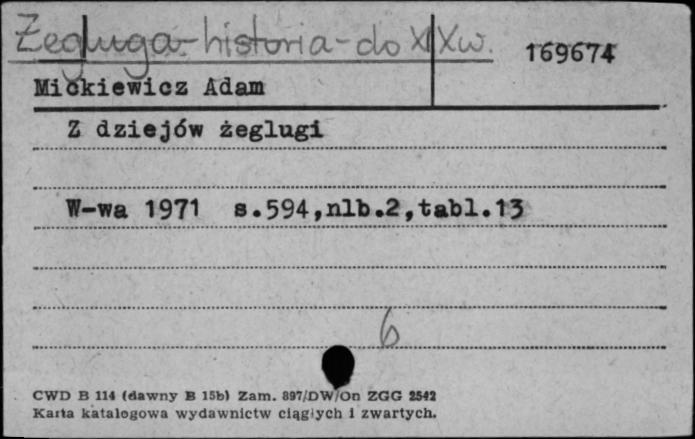 Żegluga-historia-do XIXw.
169674
Mickiewicz Adam
Z dziejów żeglugi
W-wa 1971 s.594,nlb.2,tabl.13
6
CWD B 114 (dawny B 15b) Zam. 897/DW/On ZGG 2542
Karta katalogowa wydawnictw ciągłych i zwartych.